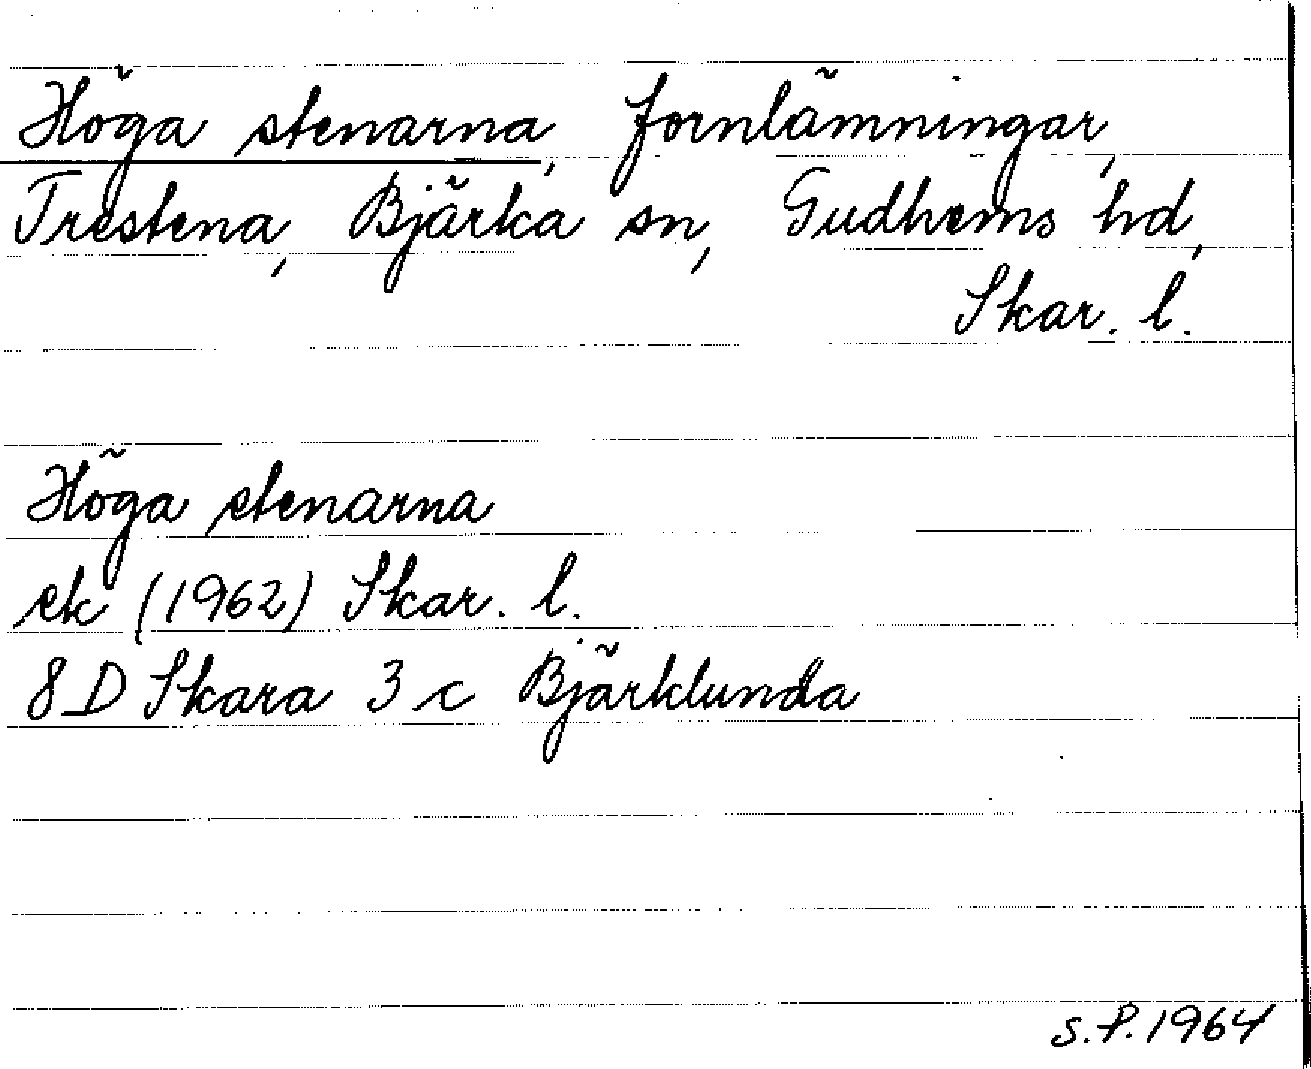 Höga stenarna, fornlämningar,
Trestena, Bjärka sn, Gudhems hd,
Skar. l.
Höga stenarna
ek (1962) Skar. l.
8D Skara 3 c Bjärklunda
S.P. 1964